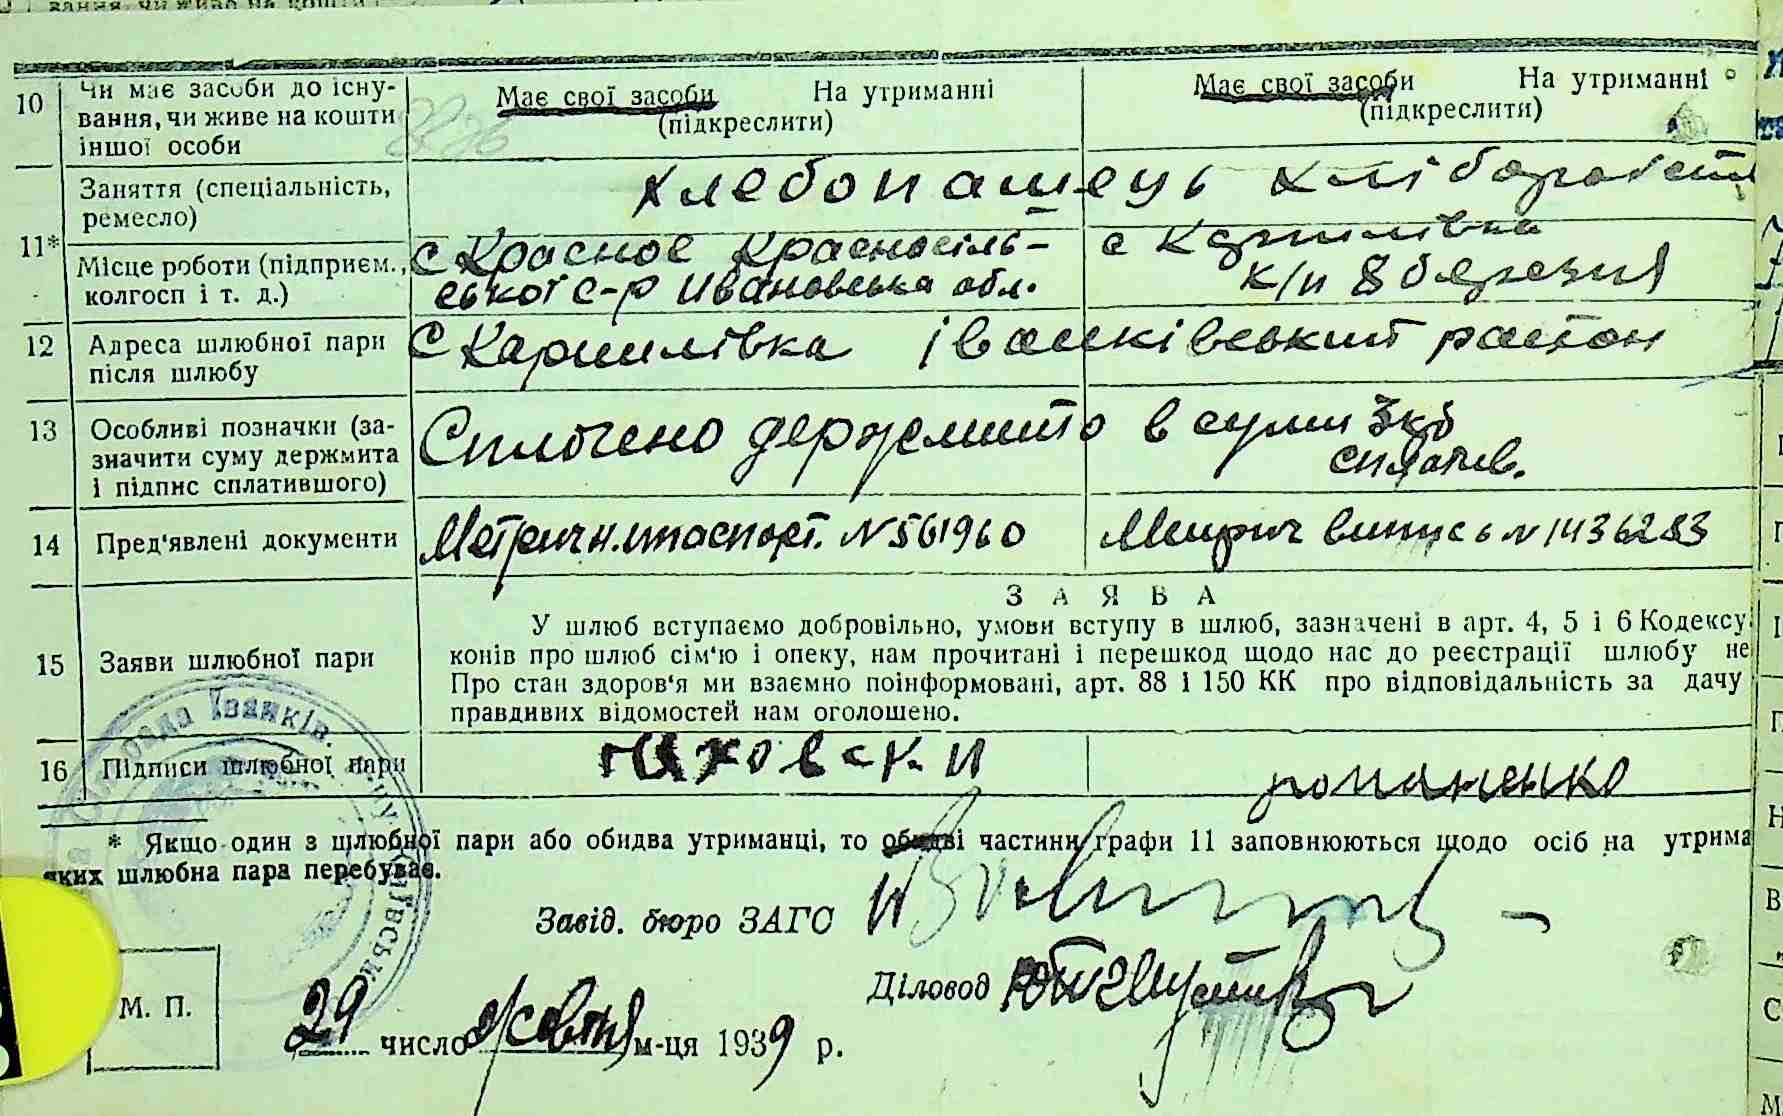 10 Чи має засоби до існу- Має свої засоби На утриманні Має свої засоби На утриманні
вання, чи живе на кошти (підкреслити) (підкреслити)
іншої особи
11* Заняття (спеціальність, Хлебопашець
ремесло)
Місце роботи (підприєм., с Красное Красносіль- с Карпилівка
колгосп і т. д.) ської с-р Ивановська обл. к/п 8 березня
12 Адреса шлюбної пари с Карпилівка Іванківський район
після шлюбу
13 Особливі позначки (за- Сплочено держмито в сумі 3 крб
значити суму держмита
і підпис сплатившого)
14 Пред‘явлені документи паспорт. №561960 випись №1436283
З А Я В А
15 Заяви шлюбної пари У шлюб вступаємо добровільно, умови вступу в шлюб, зазначені в арт. 4, 5 і 6 Кодексу
конів про шлюб сім‘ю і опеку, нам прочитані і перешкод щодо нас до реєстрації шлюбу не
Про стан здоров‘я ми взаємно поінформовані, арт. 88 і 150 КК про відповідальність за дачу
правдивих відомостей нам оголошено.
16 Підписи шлюбної пари романенко
* Якщо один з шлюбної пари або обидва утриманці, то обидві частини графи 11 заповнюються щодо осіб на утрима
яких шлюбна пара перебуває.
Завід. бюро ЗАГС
Діловод
М. П.
29 число жовтня м-ця 1939 р.